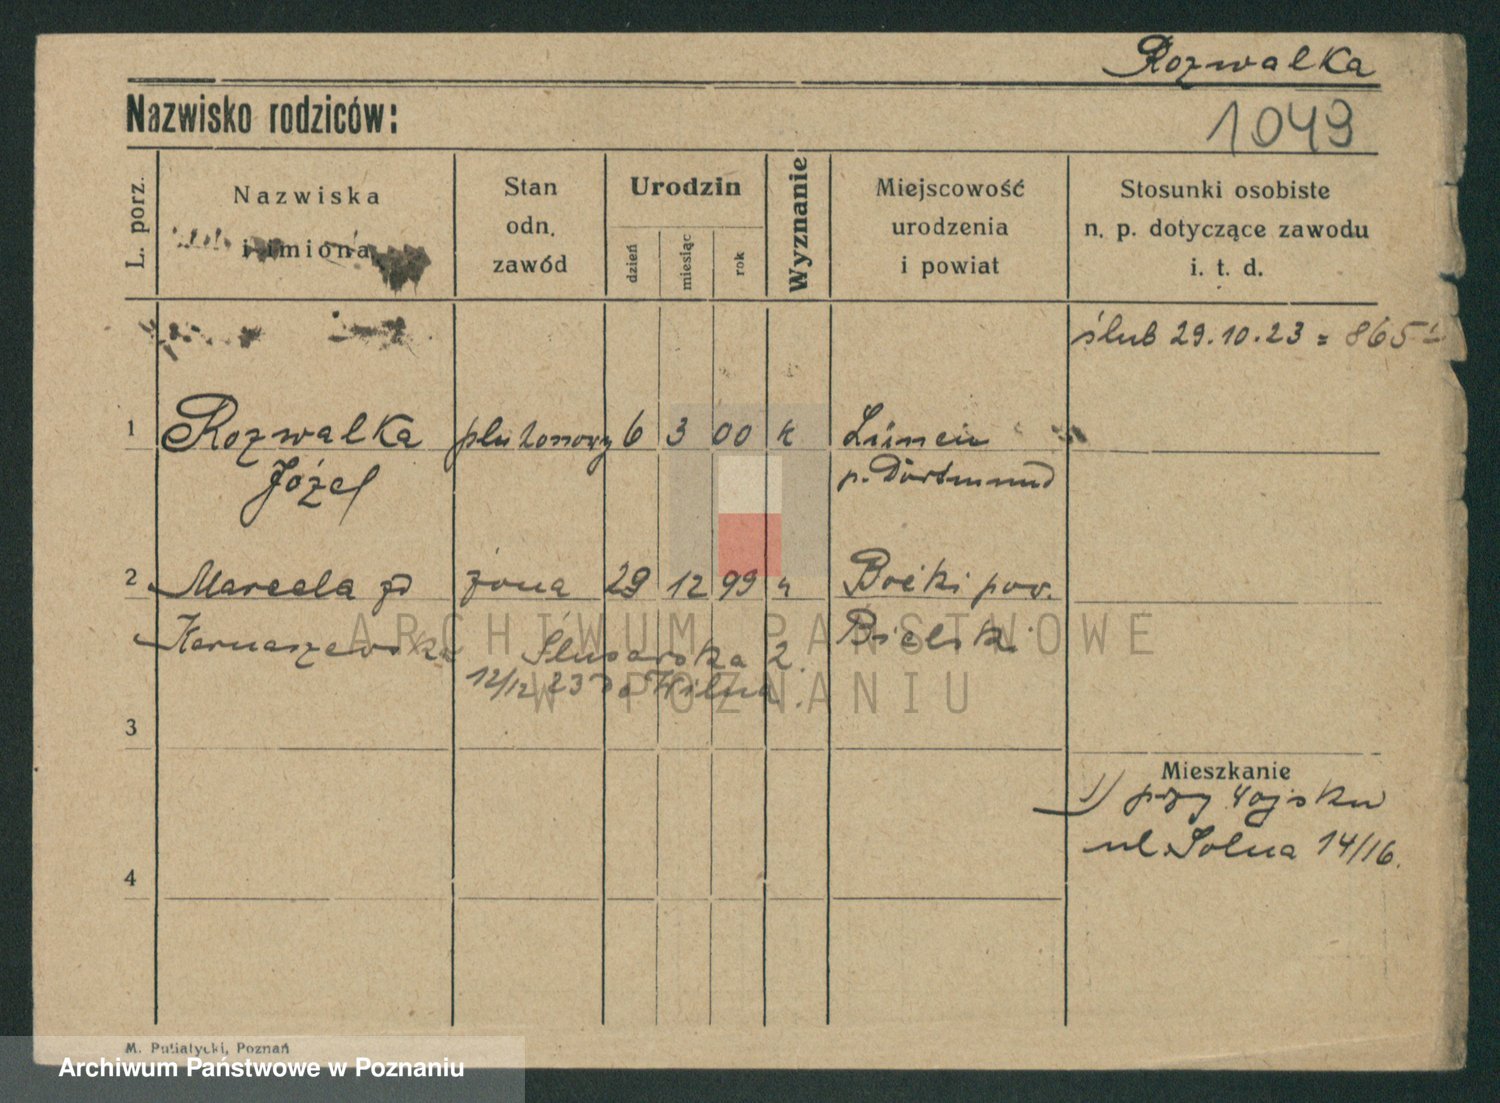 Rozwalka
Nazwisko rodziców:
1049
L. porz.
Nazwiska
i imiona
Stan
odn.
zawód
Urodzin
dzień
miesiąc
rok
Wyznanie
Miejscowość
urodzenia
i powiat
Stosunki osobiste
n. p. dotyczące zawodu
i. t. d.
ślub 29.10.23 = 865
1 Rozwalka plutonowy 6 3 00 k Lünen
Józef p. Dortmund
2 Marcela zd żona 29 12 99 k Boćki pow.
Karnaszewska Ślusarska 2. Bielski
12/12 23 do Wilna.
3
Mieszkanie
1) przy wojsku
ul. Solna 14/16.
4
M. Putiatycki, Poznań
ARCHIWUM PAŃSTWOWE
W POZNANIU
Archiwum Państwowe w Poznaniu